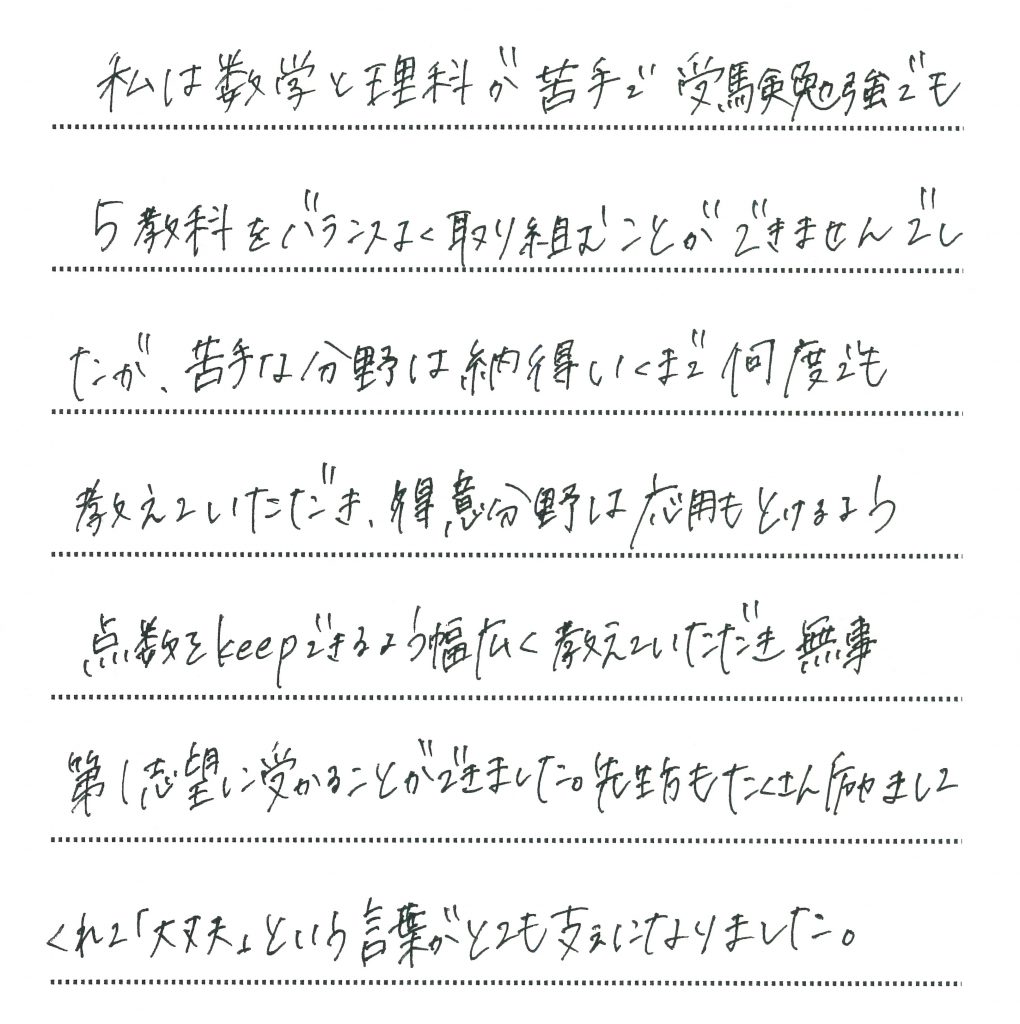 私は数学と理科が苦手で受験勉強でも
5教科をバランスよく取り組むことができませんでし
たが、苦手な分野は納得いくまで何度でも
教えていただき、得意分野は応用もとけるよう
点数をkeepできるよう幅広く教えていただき無事
第1志望に受かることができました。先生方もたくさん励まして
くれて「大丈夫」という言葉がとても支えになりました。